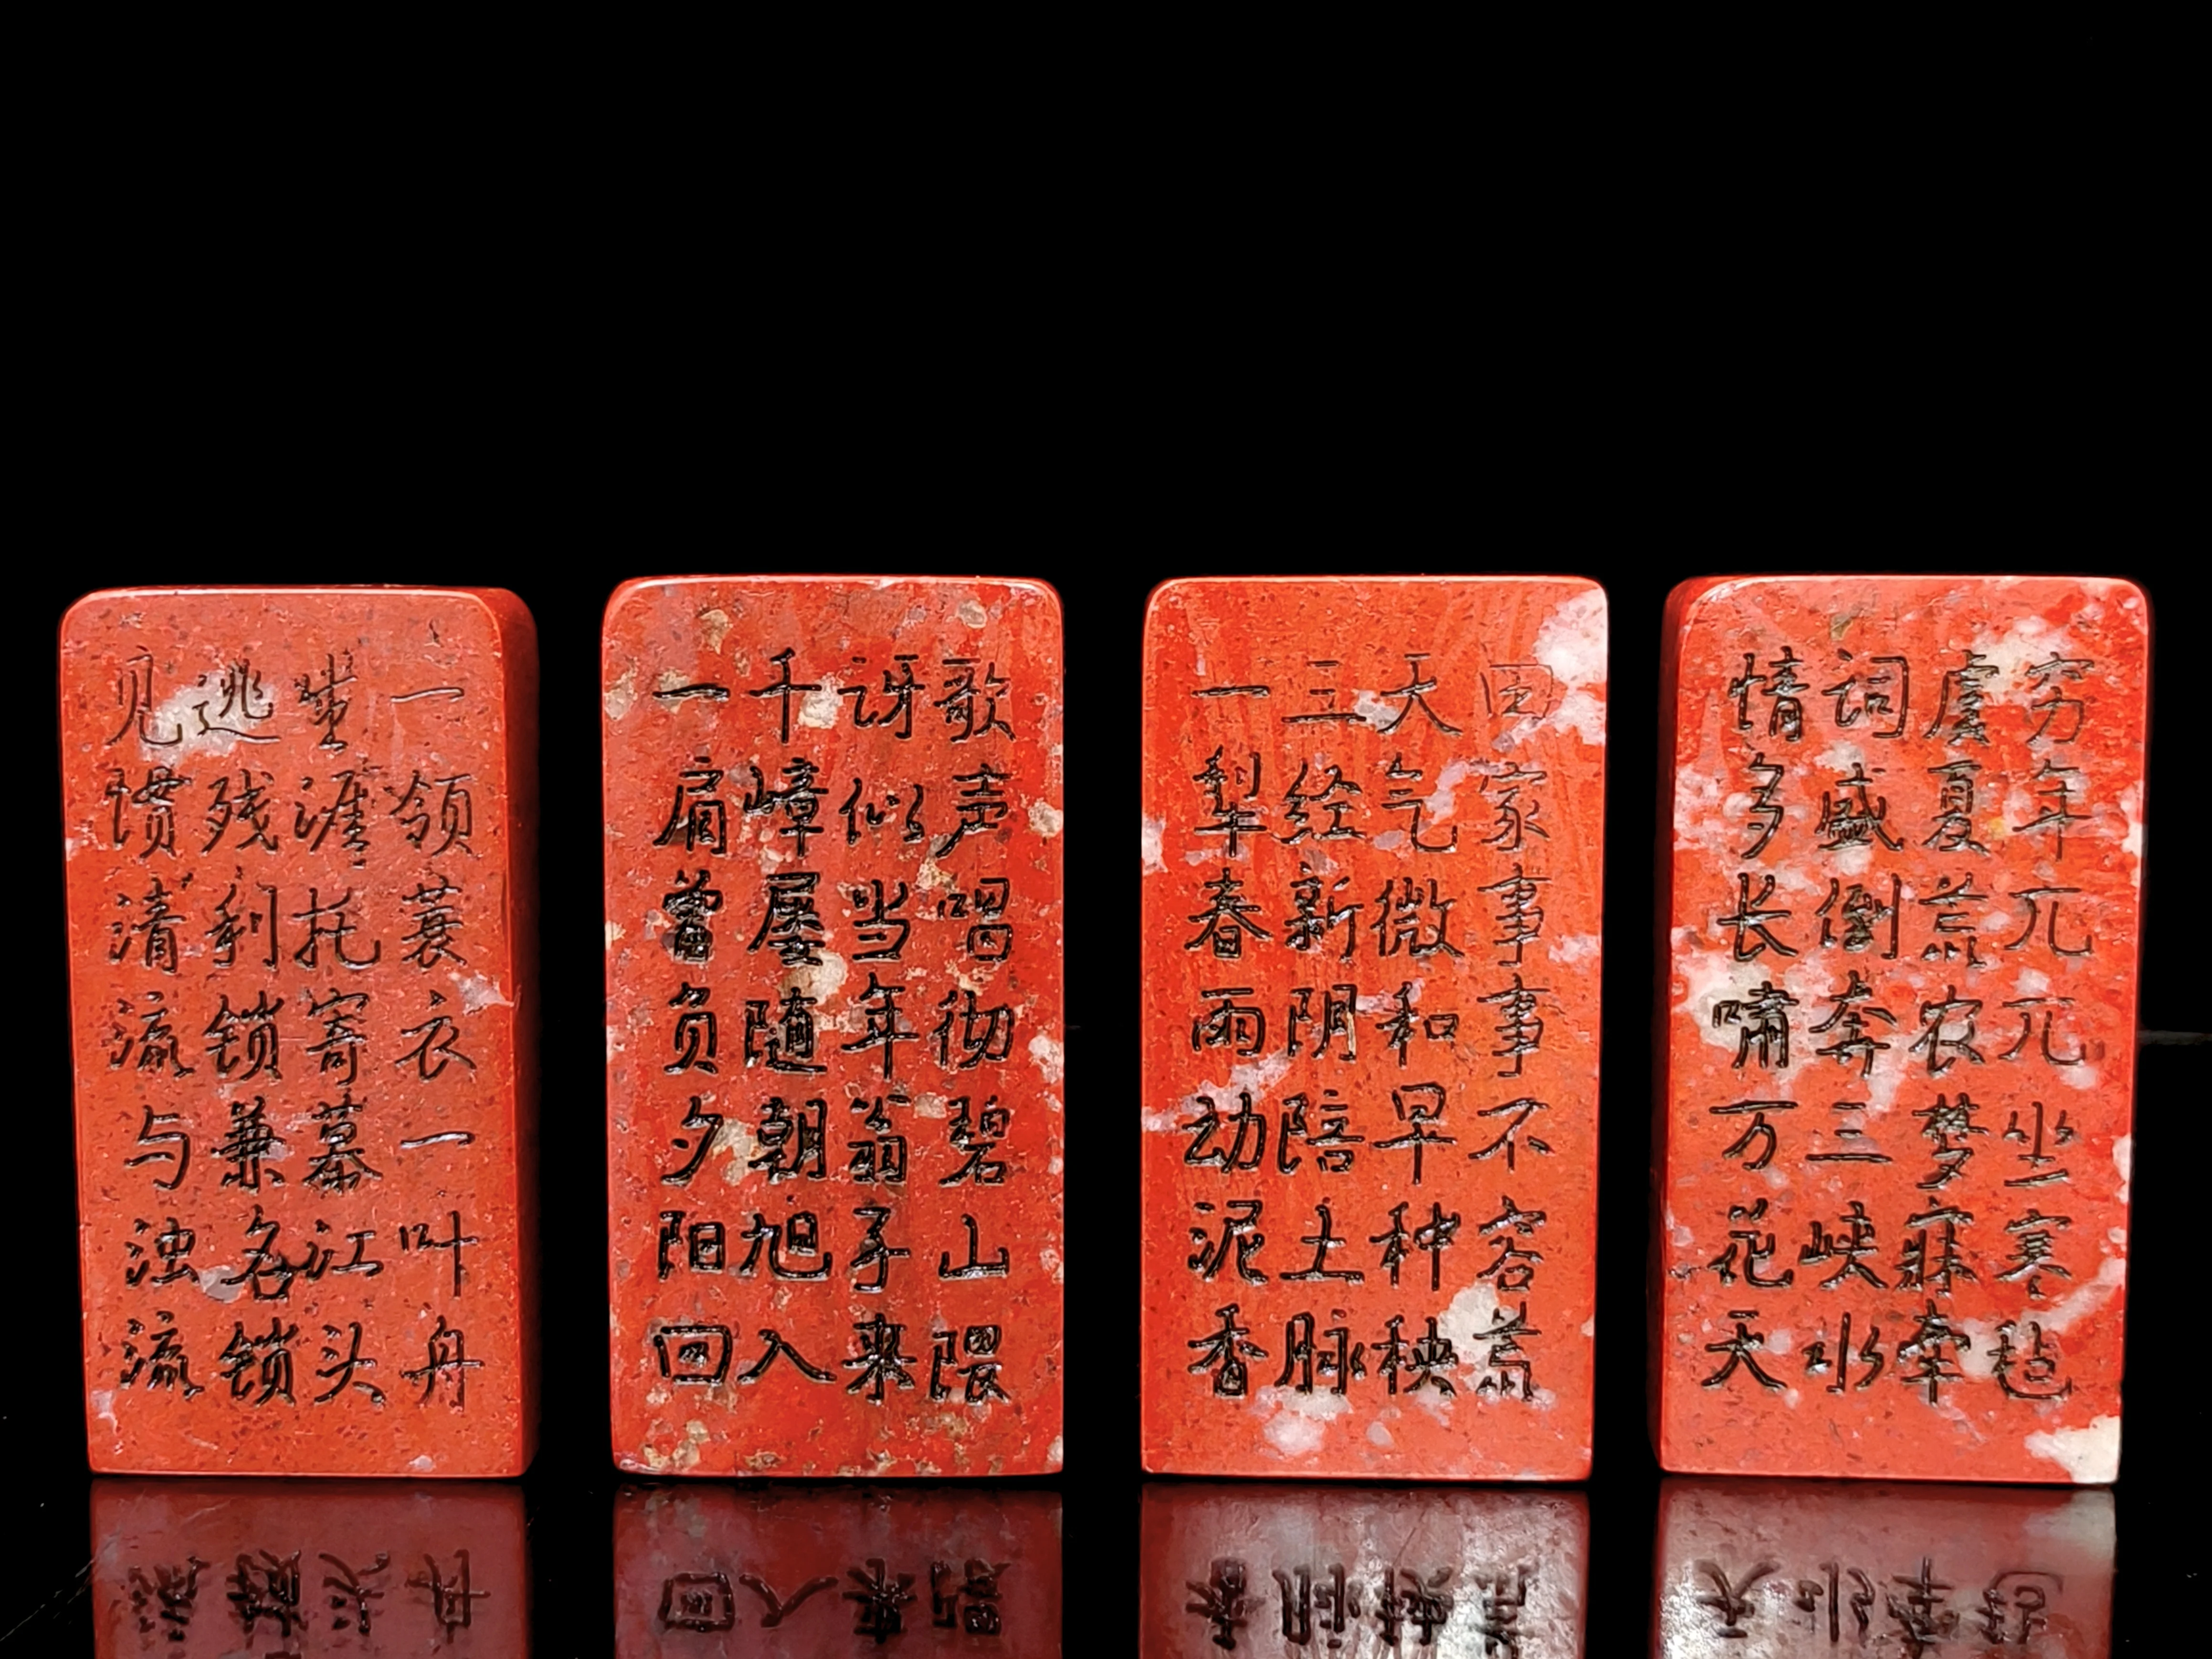 一领蓑衣一叶舟
涯托寄幕江头
逃残利锁兼名锁
见惯清流与浊流
歌声唱彻碧山隈
讶似当年翁子来
千嶂屡随朝旭入
一肩曾负夕阳回
田家事事不容荒
天气微和早种秧
三经新阴陪土脉
一犁春雨动泥香
穷年兀兀坐寒毡
虞夏荒农梦寐牵
词盛倒奔三峡水
情多长啸万花天